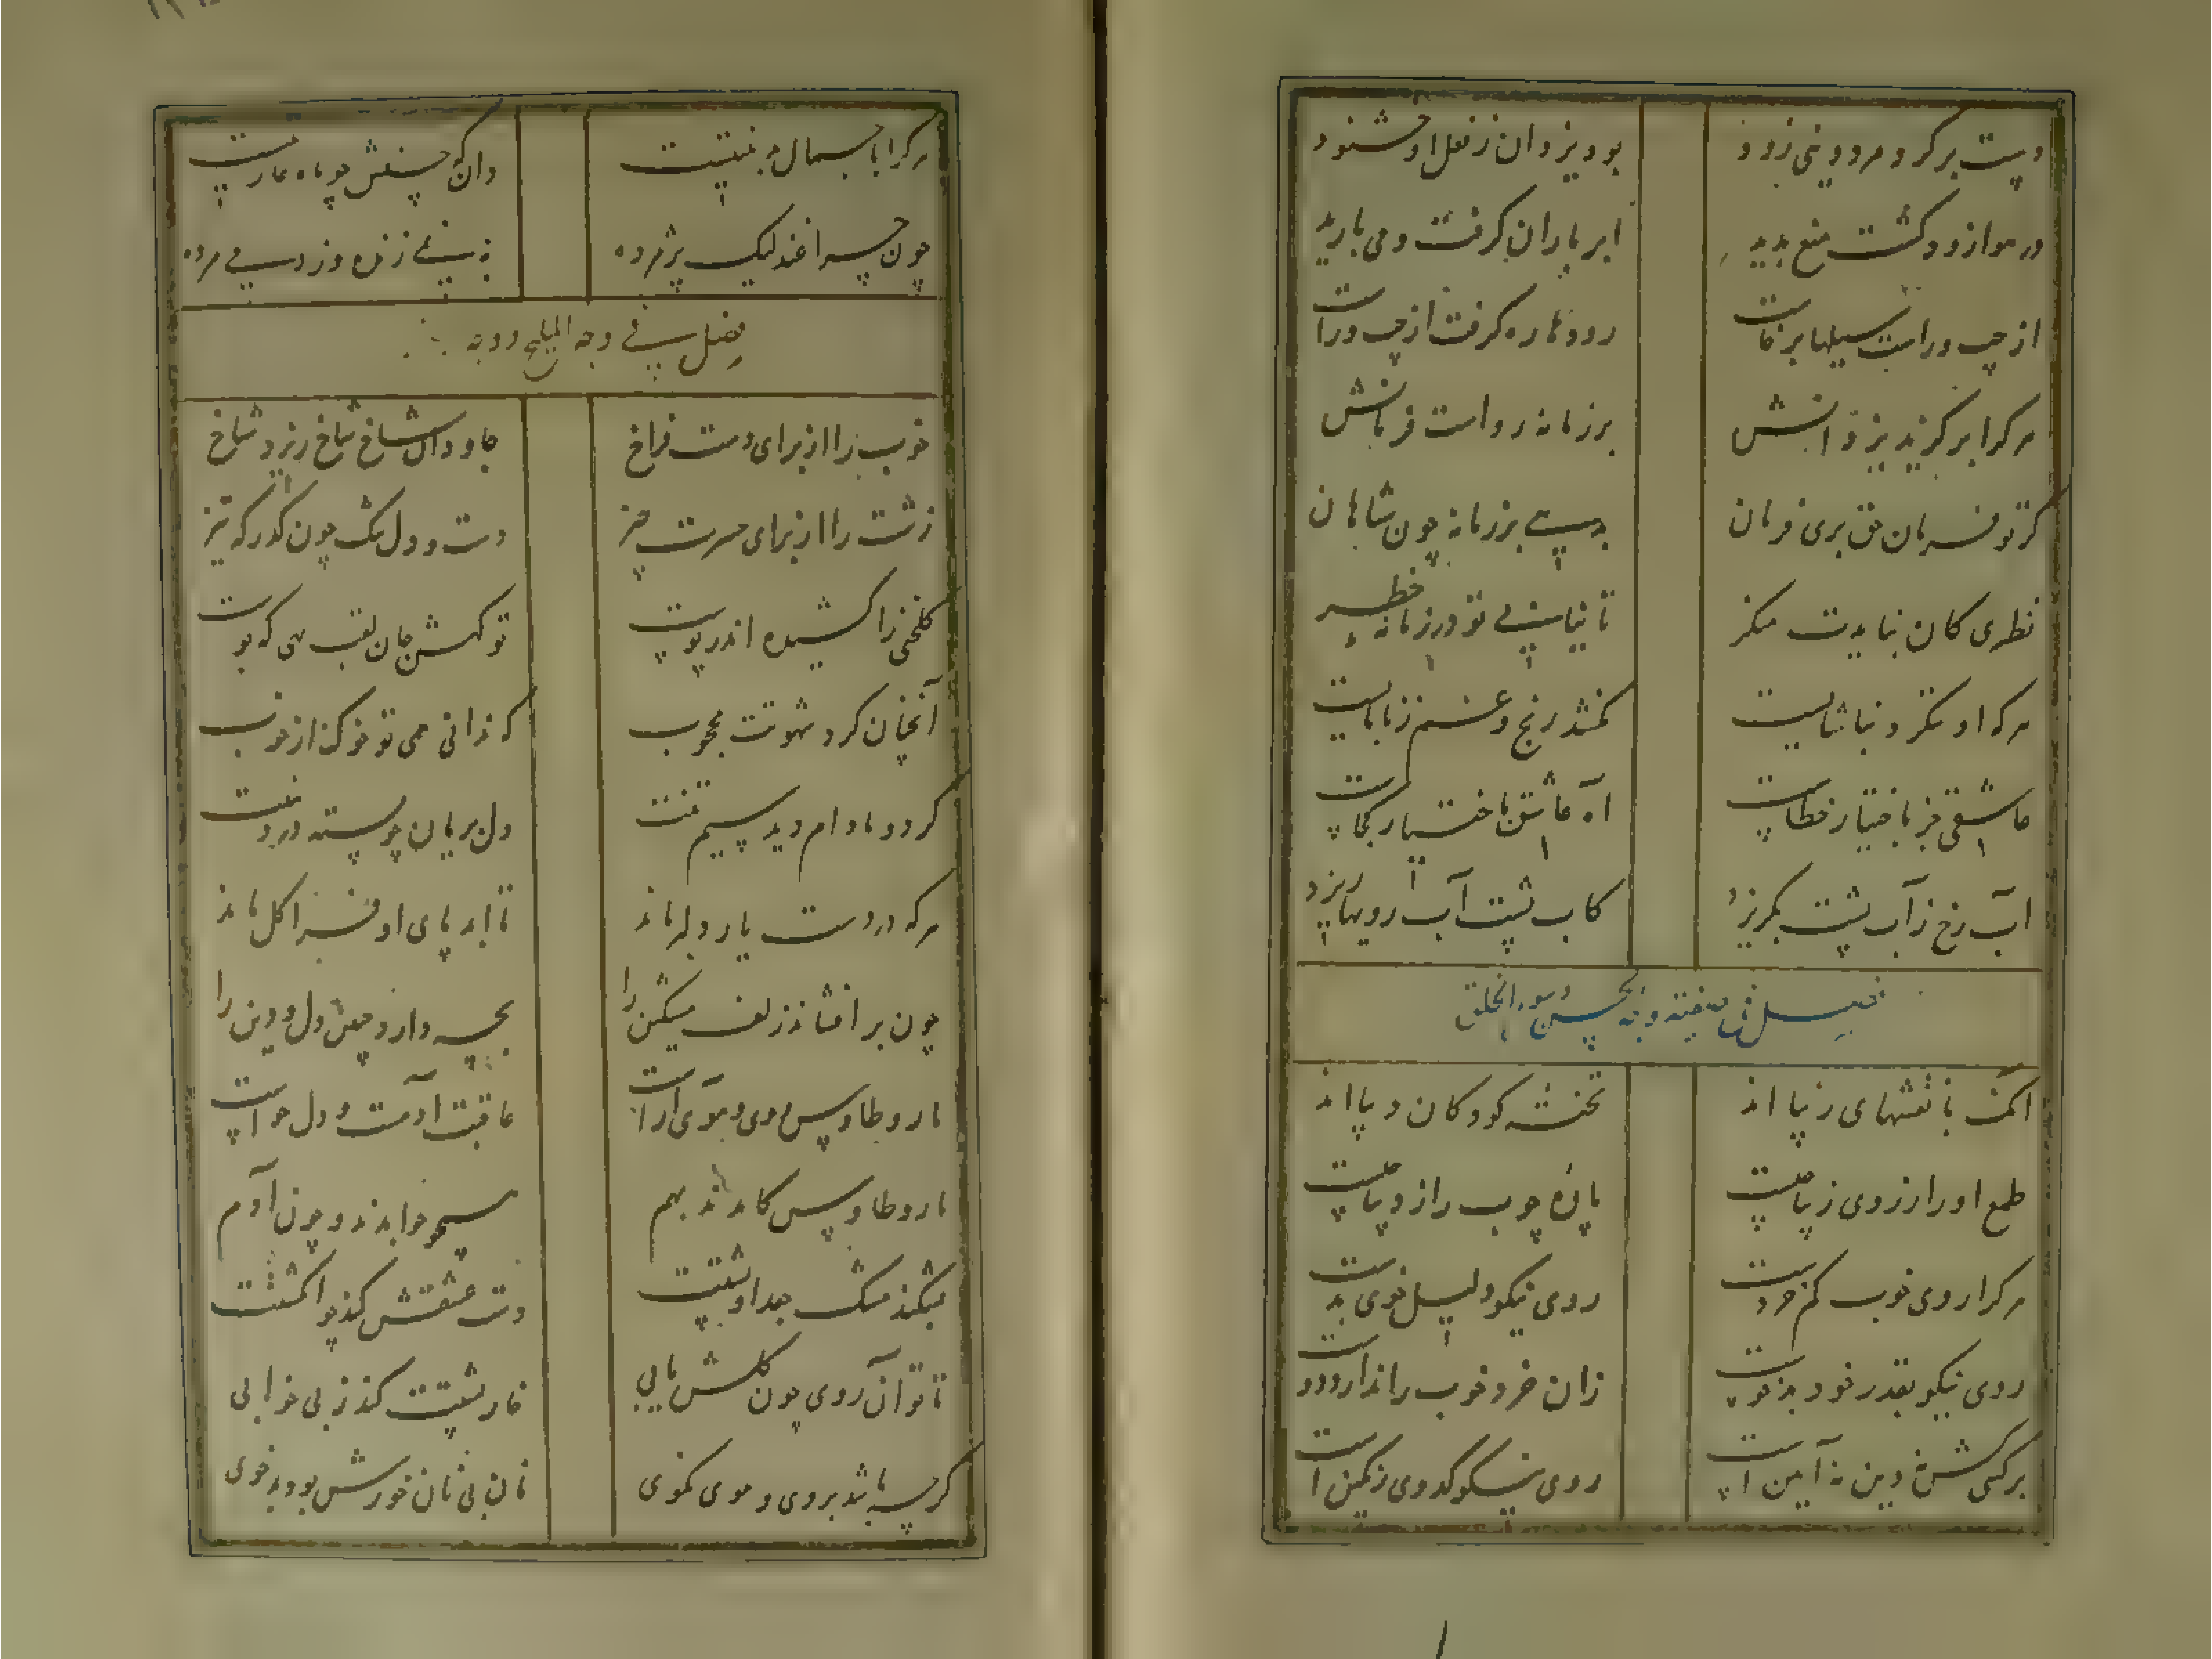 دست بر کرد مرد و یخنی زود	بود یزدان ز فعل او خشنود
در هوا زود گشت میغ پدید	ابر باران گرفت و می بارید
از چپ و راست سیلها برخاست	رودها ره گرفت از چپ و راست
هر که را بر گزید یزدانش	بر زمانه رواست فرمانش
گر تو فرمان حق بری فرمان	بدهی بر زمانه چون شاهان
نظری کان نبایدت منگر	تا نباشی تو در زمانه خطیر
هر که او ننگرد نباشایست	نکشد رنج و غم ز نابایست
عاشقی جز باختیار خطاست	آه عاشق باختیار کجاست
آب رخ ز آب پشت بگریزد	کاب پشت آب رویها ریزد
فصل فی صفته وجه الحسن وسوء الخلق
آنک با نقشهای زیبا اند	تخته کودکان دیبا اند
طمع او را ز روی زیبا چیست	پاره چوب را ز دیبا چیست
هر که را روی خوب کم خردست	روی نیکو دلیل خوی بدست
روی نیکو بقدر خود بدخوست	زان خرد خوب را ندارد دوست
بر کسی کش نه دین نه آیین است	روی نیکو کدوی رنگین است
هر که را با جمال بدخوئیست	وانکه حسنش چو ماه عاریتیست
چون چراغند لیک پژمرده	نه بنی زنده و ز دمی مرده
فصل فی وجه الملیح ووجه
خوب را از برای دست فراخ	جاودان شاخ شاخ ریزد شاخ
زشت را از برای حسرت چیز	دست و دل تنگ چون گذر گه تیز
گلخنی را کشیده اندر پوست	تو کنش جان لقب نهی که بوست
آنچنان کرد شهوتت محجوب	که ندانی همی تو خوک از خوب
گر دو بادام دید و سیم تنت	دل بریان چو پسته در دهنت
هر که در دست یار دلبر ماند	تا ابد پای او فرا گل ماند
چون بر افشاند زلف مشکین را	بچه دارد جنین دل و دین را
مار و طاوس روی و موی آراست	عاقبت آدمت و دل حواست
مار و طاوس کامدند بهم	سیم حوا بدند و چون آدم
میکند مشک جعد او پشتت	دست عشقش کند چو انگشتت
تا تو آن روی چون گلش یابی	خار پشتت کند ز بی خوابی
گرچه باشد بروی و موی نکوی	نان بی نان خورش بود بدخوی